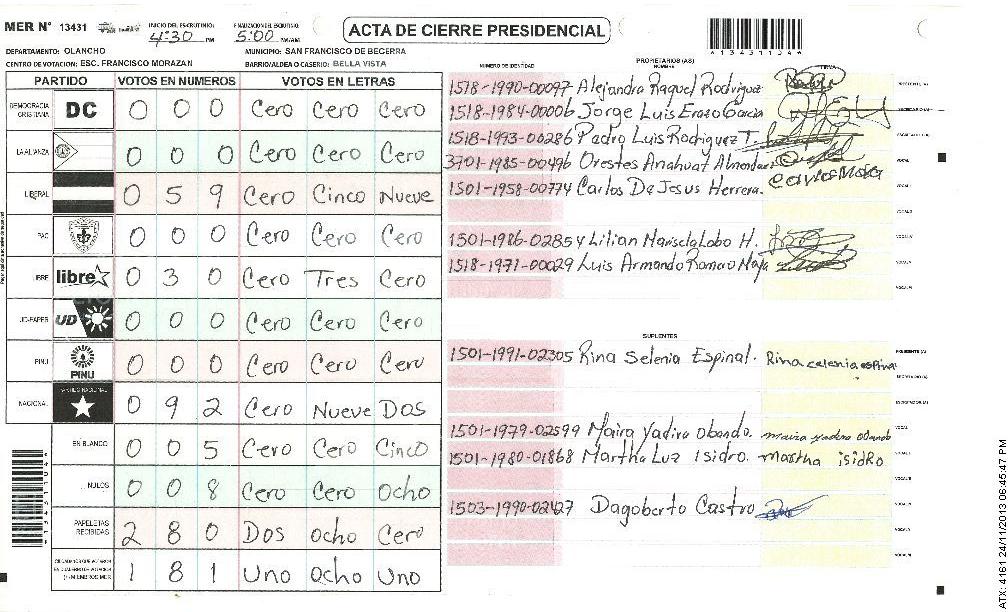 MER N° 13431
INICIO DEL ESCRUTINIO:
4:30 PM
FINALIZACION DEL ESCRUTINIO:
5:00 PM/AM
ACTA DE CIERRE PRESIDENCIAL
DEPARTAMENTO: OLANCHO
MUNICIPIO: SAN FRANCISCO DE BECERRA
CENTRO DE VOTACION: ESC. FRANCISCO MORAZAN
BARRIO/ALDEA O CASERIO: BELLA VISTA
PARTIDO VOTOS EN NUMEROS VOTOS EN LETRAS
DEMOCRACIA CRISTIANA DC 0 0 0 Cero Cero Cero
LA ALIANZA 0 0 0 Cero Cero Cero
LIBERAL 0 5 9 Cero Cinco Nueve
PAC 0 0 0 Cero Cero Cero
LIBRE libre 0 3 0 Cero Tres Cero
UD-FAPER UD 0 0 0 Cero Cero Cero
PINU PINU 0 0 0 Cero Cero Cero
NACIONAL 0 9 2 Cero Nueve Dos
EN BLANCO 0 0 5 Cero Cero Cinco
NULOS 0 0 8 Cero Cero Ocho
PAPELETAS RECIBIDAS 2 8 0 Dos ocho Cero
1 8 1 Uno ocho Uno
PROPIETARIOS (AS)
NUMERO DE IDENTIDAD NOMBRE FIRMA
1518-1990-00097 Alejandra Raquel Rodriguez
1518-1984-00006 Jorge Luis Erazo Garcia
1518-1993-00286 Pedro Luis Rodriguez T.
3701-1985-00496 Orestes Anahuat
1501-1958-00774 Carlos De Jesus Herrera.
1501-1986-02854 Lilian Marisela Lobo H.
1518-1971-00029 Luis Armando Romero
SUPLENTES
1501-1991-02305 Rina Selenia Espinal. Rina celenia espinal
1501-1979-02599 Maira Yadira Obando. maira yadira obando
1501-1980-01868 Martha Luz Isidro. martha isidro
1503-1990-02427 Dagoberto Castro
13431134
ATX: 4161 24/11/2013 06:45:47 PM